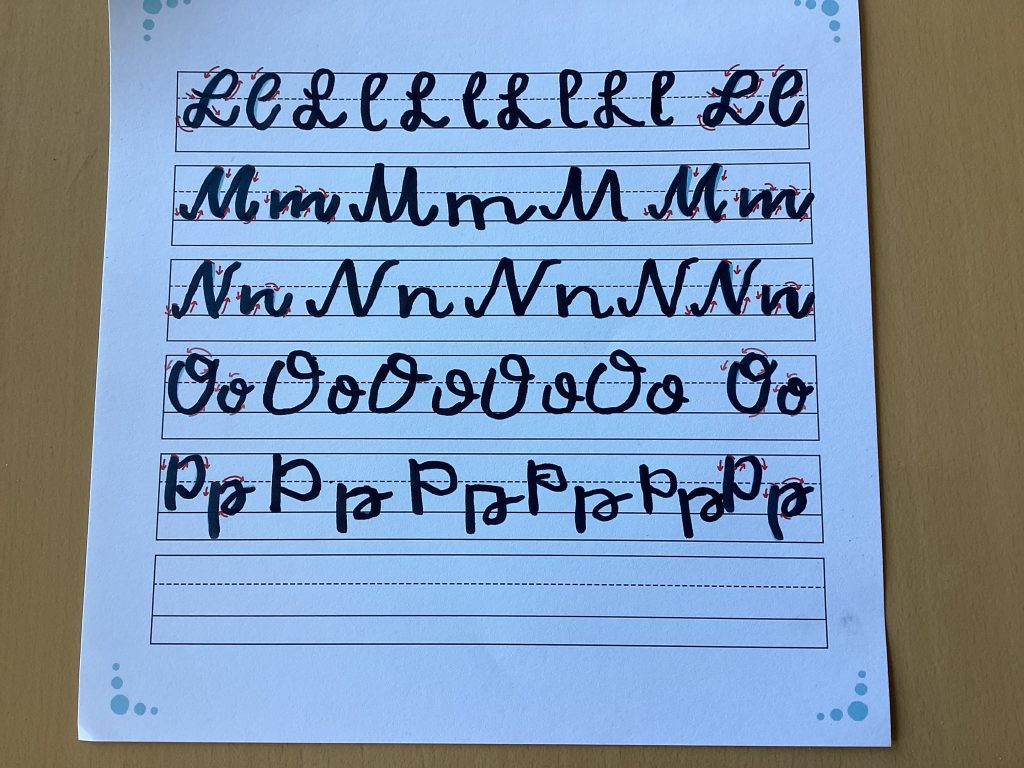 Ll Ll Ll Ll Ll Ll
Mm Mm M Mm
Nn Nn Nn N Nn
Oo Oo Oo Oo Oo Oo
Pp Pp Pp Pp Pp Pp